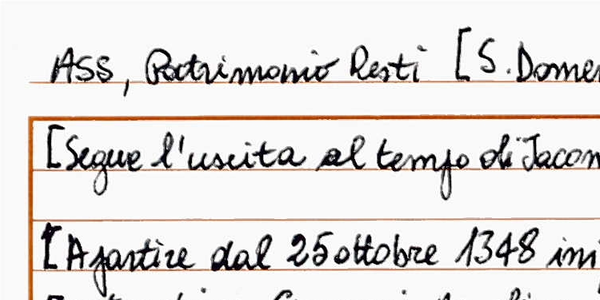 ASS, Patrimonio Resti [S. Domen
[Segue l'uscita al tempo di Jacom
[A partire dal 25 ottobre 1348 ini